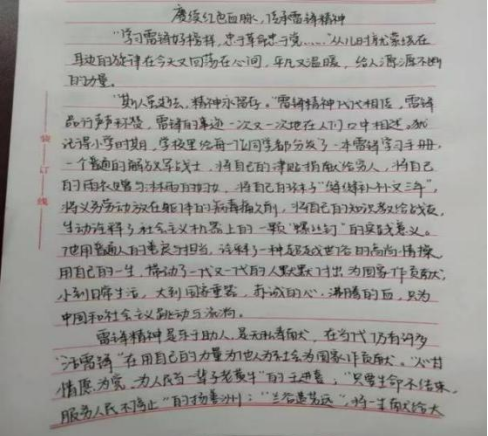 赓续红色血脉，传承雷锋精神
"学习雷锋好榜样，忠于革命忠于党……"从儿时就萦绕在
耳边的旋律在今天又回荡在心间，平凡又温暖，给人源源不断
的力量。
"斯人虽逝，精神永留存，"雷锋精神代代相传，雷锋
品行声声称赞，雷锋的事迹一次又一次地在人们口中相述。犹
记得小学时期，学校里给每一位同学都分发了一本雷锋学习手册，
一个普通的解放军战士，将自己的津贴捐献给穷人，将自己
的雨衣赠与淋雨的妇女，将自己的袜子"缝缝补补又三年"，
将义务劳动放在自己的病痛之前，将自己的知识教给战友，
生动诠释了社会主义机器上的一颗"螺丝钉"的实践意义。
他用普通人的善良与担当，诠释了一种超越世俗的高尚情操，
用自己的一生，带动了一代又一代的人默默付出为国家作贡献，
小到日常生活，大到国之重器，赤诚的心，沸腾的血，只为
中国和社会主义跳动与流淌。
雷锋精神是乐于助人，是无私奉献，在当代仍有许多
"活雷锋"在用自己的力量为他人为社会为国家作贡献。"心甘
情愿为党、为人民当一辈子老黄牛"的王进喜，"只要生命不结束，
服务人民不停止"的杨善洲；"三谷透芳远"，将一生献给大
装
订
线